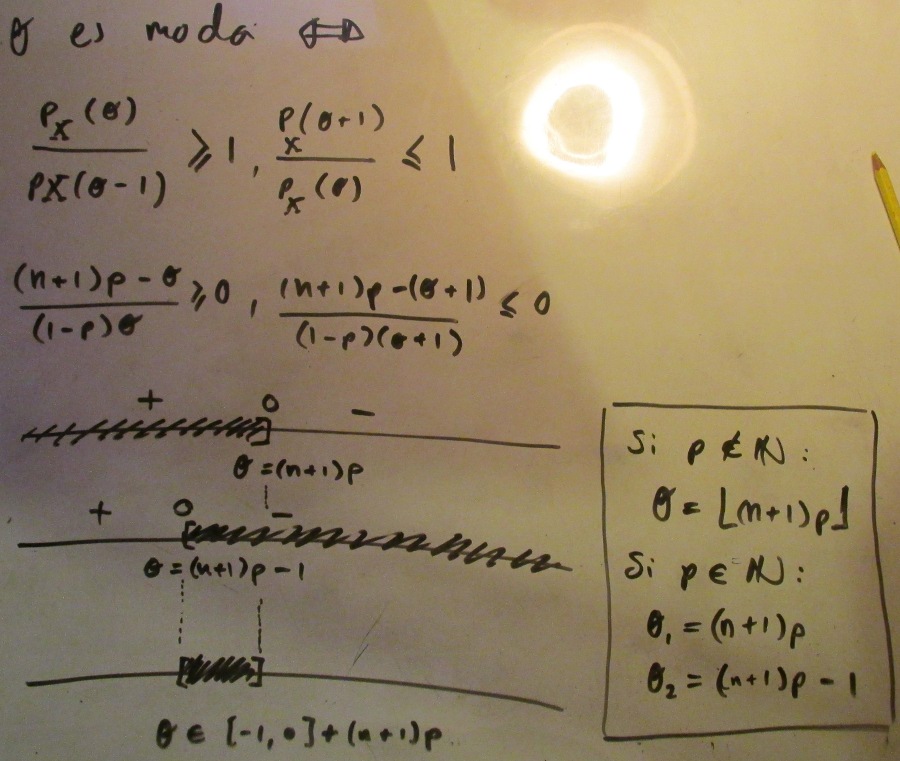 θ es moda ⟺
P_X(θ) / P_X(θ-1) ≥ 1 , P_X(θ+1) / P_X(θ) ≤ 1
(n+1)p - θ / (1-p)θ ≥ 0 , (n+1)p - (θ+1) / (1-p)(θ+1) ≤ 0
+ 0 -
θ = (n+1)p
+ 0 -
θ = (n+1)p - 1
θ ∈ [-1, 0] + (n+1)p
Si p ∉ ℕ :
θ = ⌊(n+1)p⌋
Si p ∈ ℕ :
θ₁ = (n+1)p
θ₂ = (n+1)p - 1